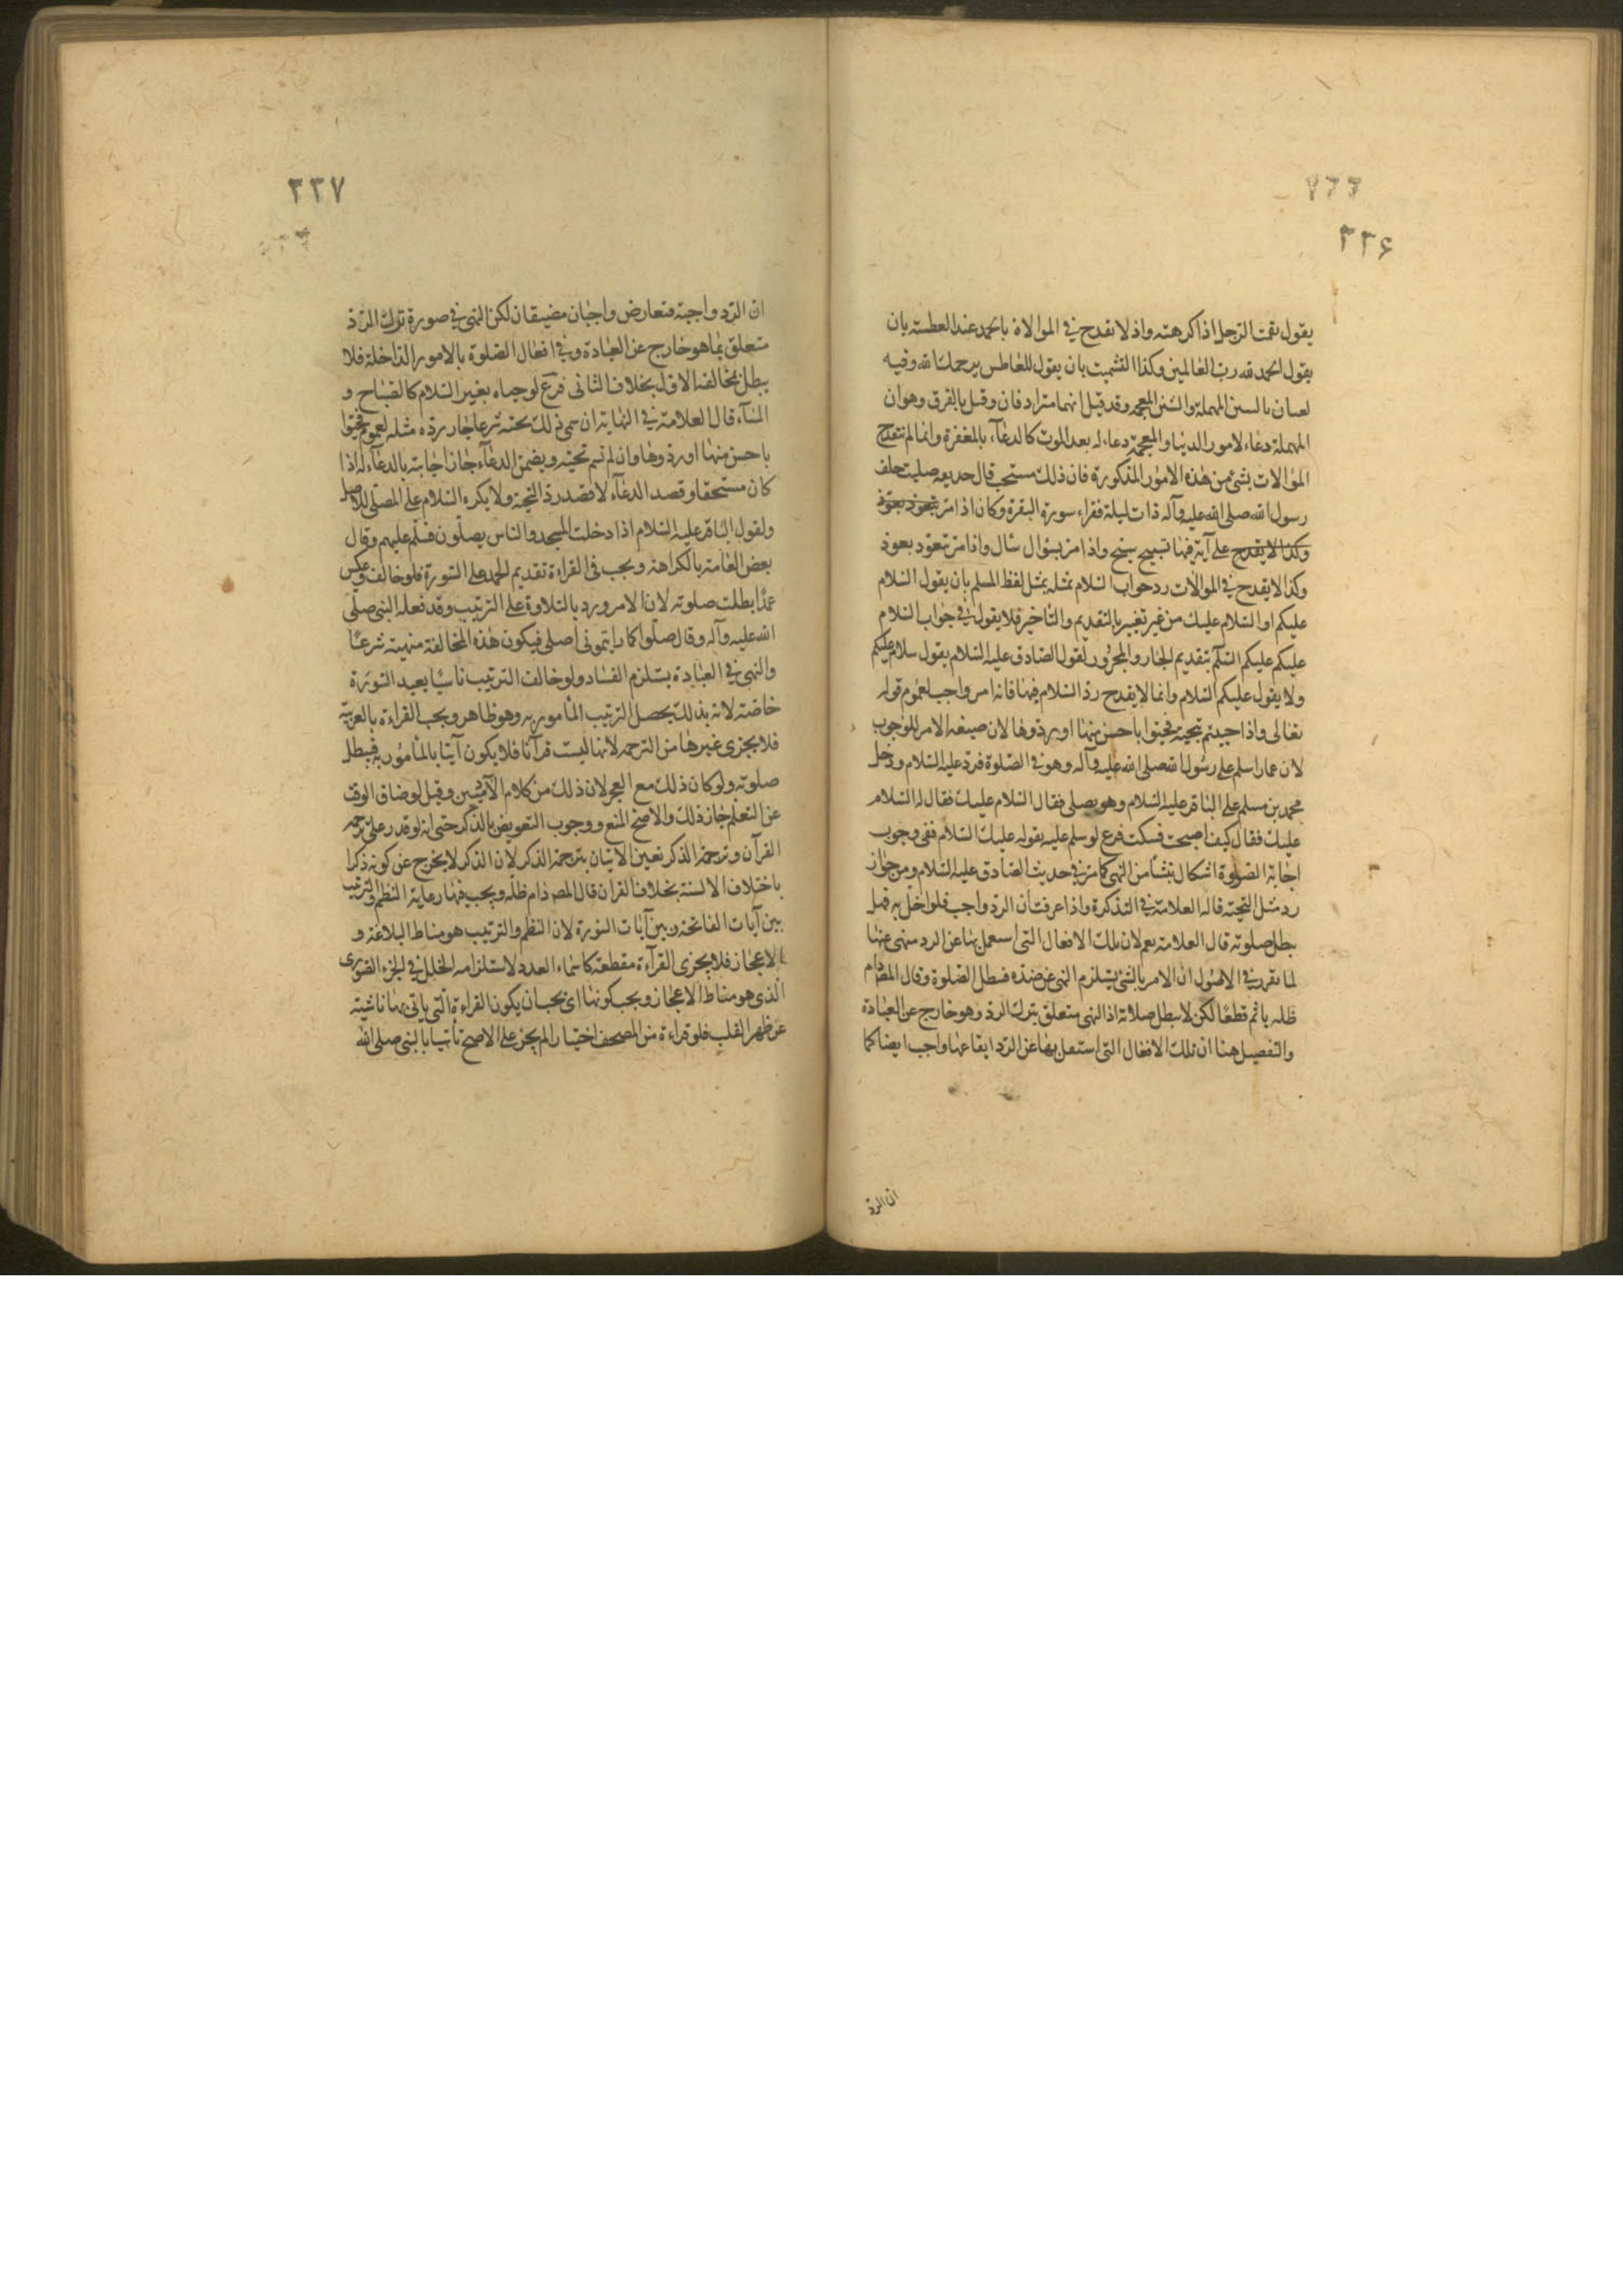 ٢٢۶
يقول نقمت الرجل اذا كرهته واذ لا نقدح في الموالاة بالحمد عند العطسة بان
يقول الحمد لله رب العالمين وكذا التشميت بان يقول للعاطس يرحمك الله وفيه
لعسان بالسين المهملة والشين المعجمة وقد قيل انهما مترادفان وقيل بالفرق وهوان
المهملة دعاء لامور الدنيا والمعجمة دعاء له بعد الموت كالدعآء بالمغفرة وانما لم تقدح
الموالات بشئ من هذه الامور المذكورة فان ذلك مستحب قال حذيفه صليت خلف
رسول الله صلى الله عليه وآله ذات ليلة فقراء سورة البقرة وكان اذا مر بتعوذ بعوذ
وكذا لا يقدح على آية فيها تسبيح سبح واذا مر بسؤال سأل واذا مر تعوذ بعوذ
وكذا لا يقدح في الموالات رد جواب السلام بمثله بمثل لفظ المسلم بان يقول السلام
عليكم او السلام عليك من غير تغيير بالتقديم والتأخير فلا يقول في جواب السلام
عليكم عليكم السلم بتقديم الجار والمجرور لقول الصادق عليه السلام يقول سلام عليكم
ولا يقول عليكم السلام وانما لا يقدح رد السلام فيها فانه امر واجب لعموم قوله
تعالى واذا حييتم بتحية فحيوا باحسن منها او ردوها لان صيغه الامر للوجوب
لان عمارا سلم على رسول الله صلى الله عليه وآله وهو في الصلوة فرد عليه السلام ودخل
محمد بن مسلم على الباقر عليه السلام وهو يصلى فقال السلام عليك فقال له السلام
عليك فقال كيف اصبحت فسكت فرع لو سلم عليه بقوله عليك السلام ففى وجوب
اجابة الصلوة اشكال ينشأ من النهى كما مر في حديث الصادق عليه السلام ومن جواز
رد مثل التحية قاله العلامة في التذكرة واذا عرفت ان الرد واجب فلو اخل به فهل
يبطل صلوته قال العلامة نعم لان تلك الافعال التى اسعمل بها عن الرد منهى عنها
لما تقرر في الاصول ان الامر بالشئ يستلزم النهى عن ضده فتبطل الصلوة وقال المص دام
ظله ياثم قطعا لكن لا يبطل صلاته اذ النهى متعلق بترك الرد وهو خارج عن العبادة
والتفصيل هنا ان تلك الافعال التى استعمل بها عن الرد ايقاعها واجب ايضا كما
ان الرد
٢٢٧
ان الرد واجبة فتعارض واجبان مضيقان لكن النهى في صورة ترك الرد
متعلق بما هو خارج عن العبادة وفي افعال الصلوة بالامور الداخلة فلا
يبطل بمخالفة الاول بخلاف الثانى فرع لو حياه بغير السلام كالصباح و
المسآء قال العلامة في النهاية ان سمى ذلك تحية شرعا جاز رده مثله لعموم فحيوا
باحسن منها او ردوها وان لم تسم تحية ويضمن الدعآء جاز اجابته بالدعآء له اذا
كان مستحقا وقصد الدعآء لا قصد رد التحية ولا يكره السلام على المصلى للاصل
ولقول الباقر عليه السلام اذا دخلت المسجد والناس يصلون فسلم عليهم وقال
بعض العامة بالكراهة ويجب في القراءة تقديم الحمد على السورة فلو خالف وعكس
عمدا بطلت صلوته لان الامر ورد بالتلاوة على الترتيب وقد فعله النبى صلى
الله عليه وآله وقال صلوا كما رايتمونى اصلى فيكون هذه المخالفة منهية شرعا
والنهى في العبادة يستلزم الفساد ولو خالف الترتيب ناسيا يعيد السورة
خاصة لانه بذلك يحصل الترتيب المأمور به وهو ظاهر ويجب القراءة بالعربية
فلا يجزى غيرها من الترجمه لانها ليست قرآنا فلا يكون آتيا بالمأمور به فيبطل
صلوته ولو كان ذلك مع العجز لان ذلك من كلام الآدميين وقيل لو ضاق الوقت
عن التعلم جاز ذلك والاصح المنع ووجوب التعويض بالذكر حتى انه لو قدر على ترجمه
القرآن وترجمة الذكر تعين الاتيان بترجمة الذكر لان الذكر لا يخرج عن كونه ذكرا
باختلاف الالسنة بخلاف القران قال المص دام ظله ويجب فيها رعاية النظم والترتيب
بين آيات الفاتحة وبين آيات السورة لان النظم والترتيب هو مناط البلاغة و
الاعجاز فلا يجزى القرآءة مقطعة كاسماء العدد لاستلزامه الخلل في الجزء الصورى
الذى هو مناط الاعجاز ويجب كونها اى يجب ان يكون القراءة التى ياتى بها ناشية
عن ظهر القلب فلو قراءة من المصحف اختيارا لم يجز على الاصح تأسيا بالنبى صلى الله